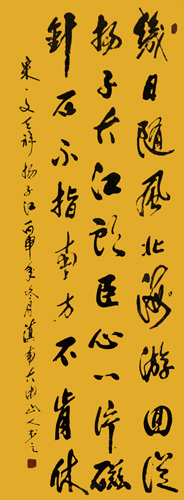 幾日随風北海游回從
扬子大江头臣心一片磁
針石不指南方不肯休
宋·文天祥 扬子江 丙申年冬月滇南大山人书